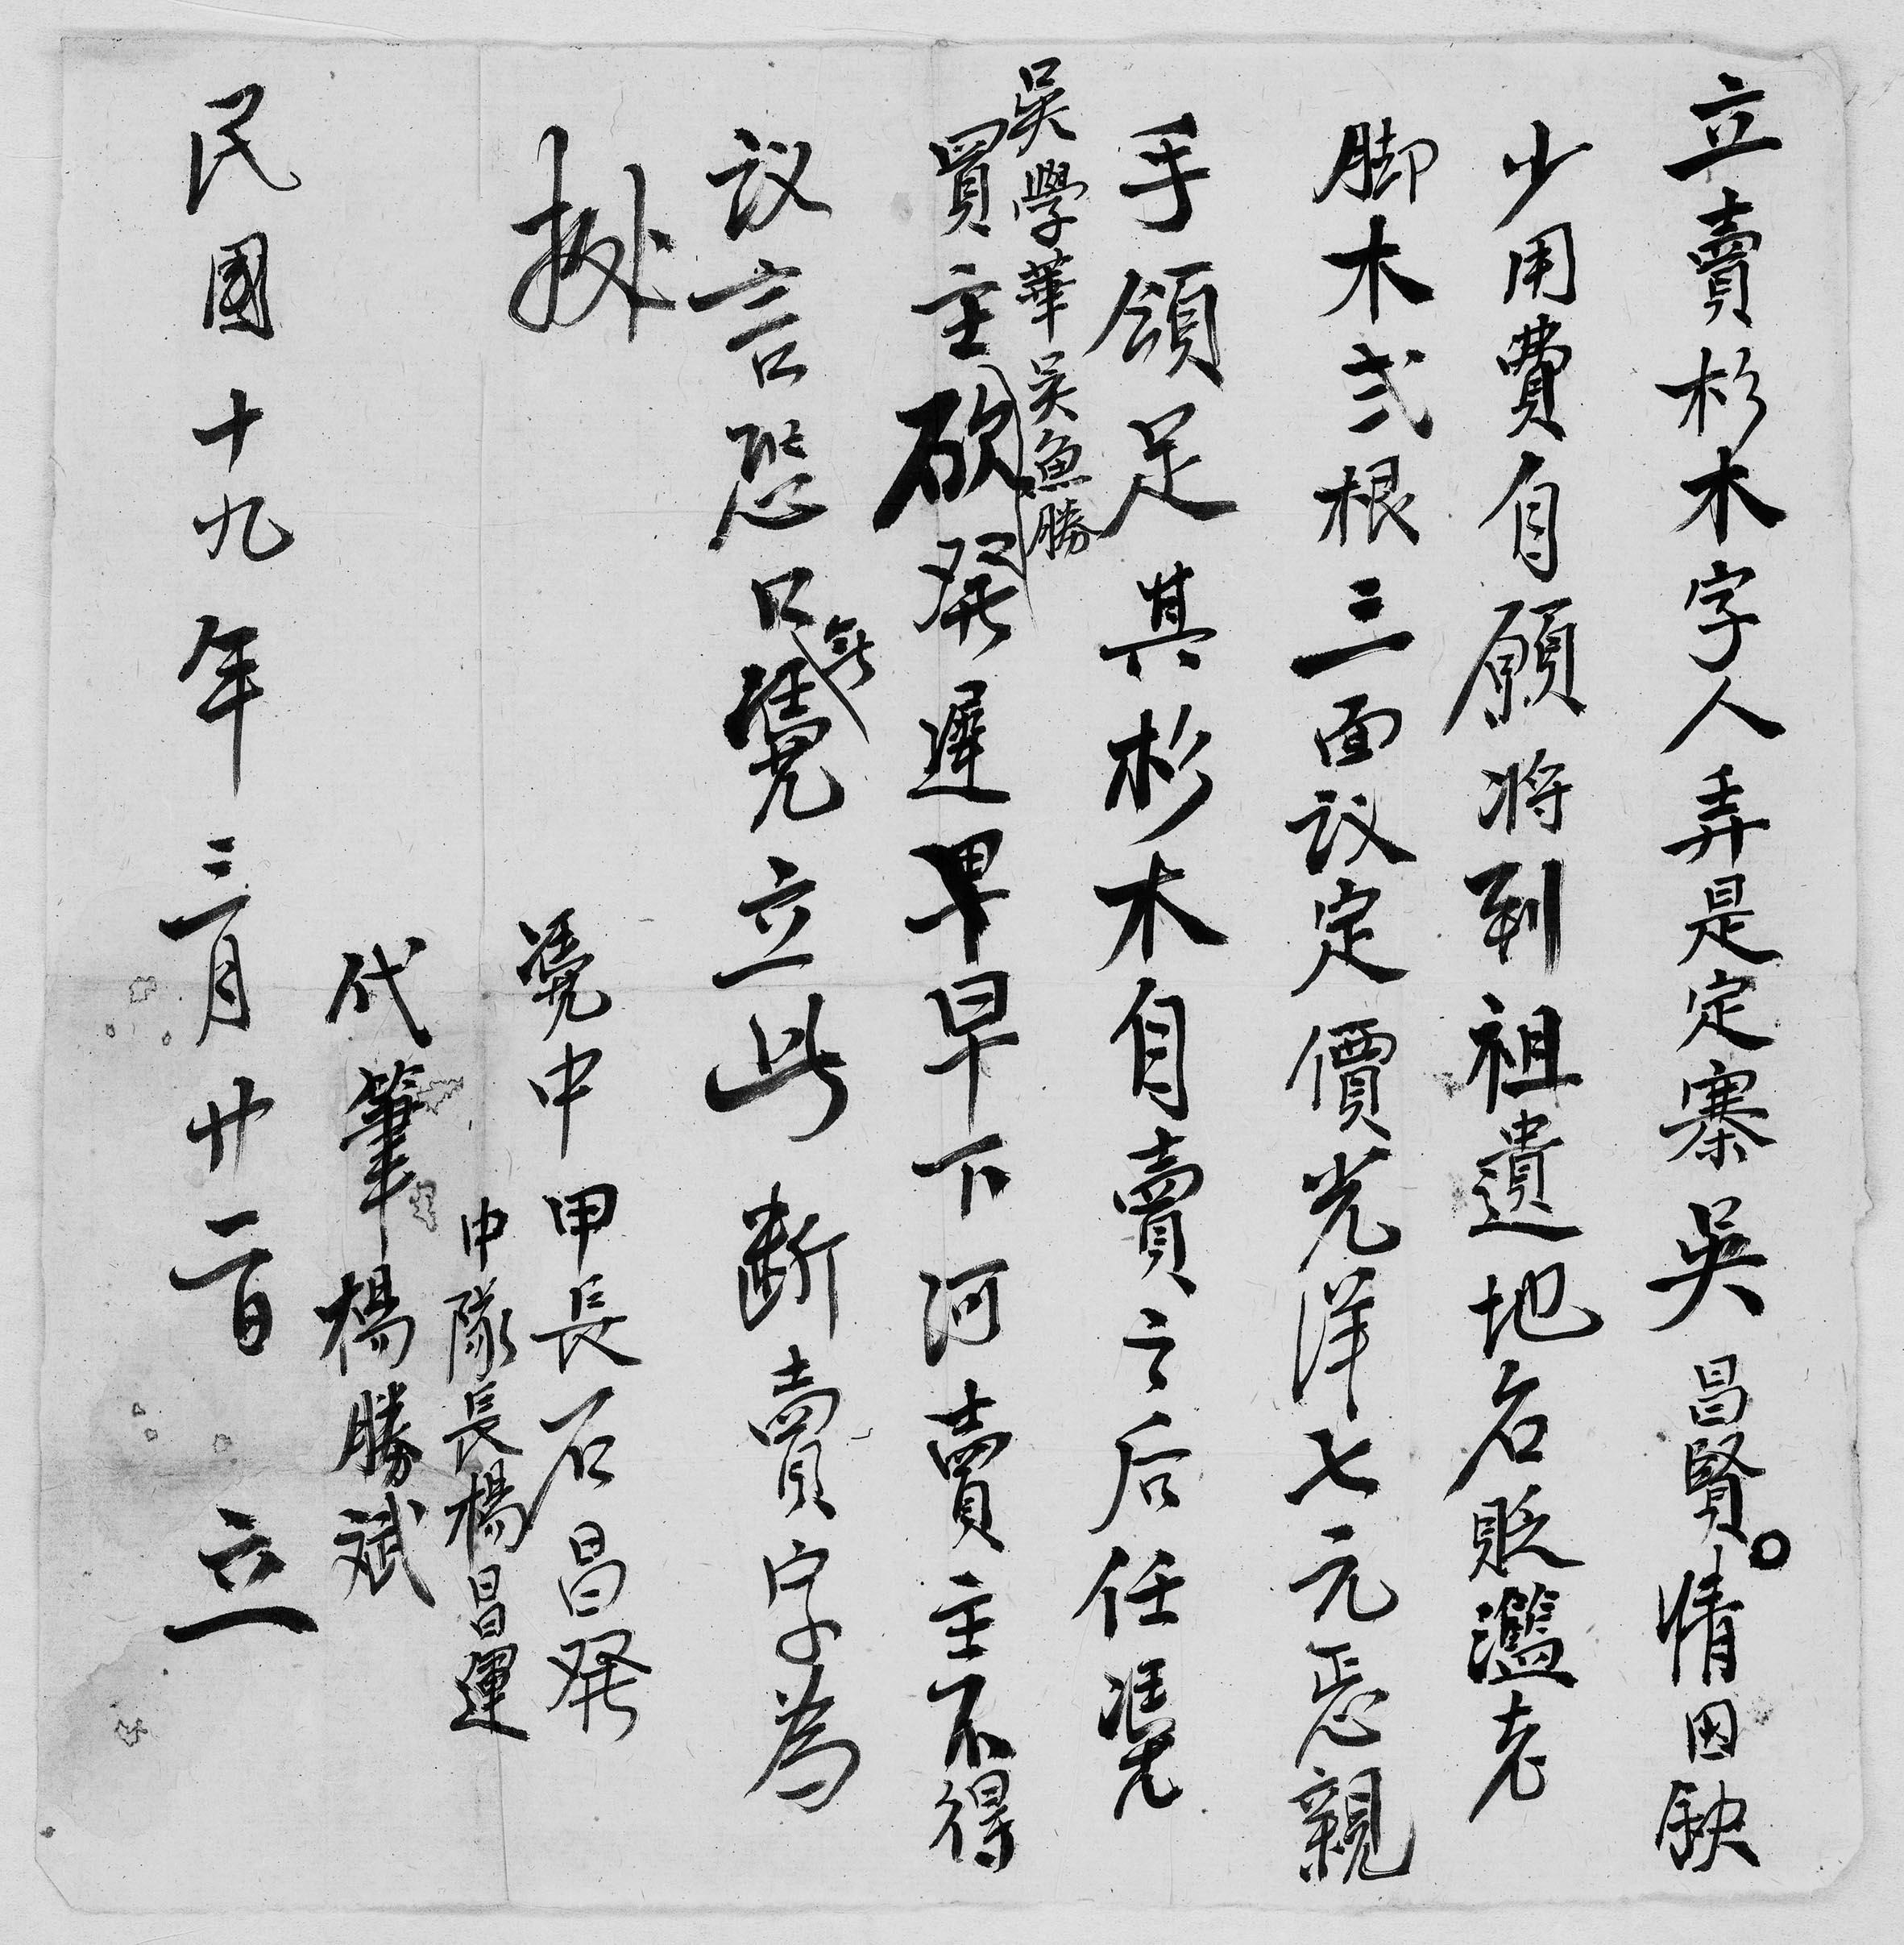 立賣杉木字人弄是定寨吳昌賢。情因缺
少用費自願将到祖遺地名貶濫老
脚木弍根三面议定價光洋七元悉親
手領足其杉木自賣之后任凴
吳學華吳魚勝
買主砍發遲早早下河賣主不得
议言恐口無凴立此断賣字為
拠
凴中甲長石昌發
中隊長楊昌運
代筆楊勝斌
民國十九年三月廿一日立